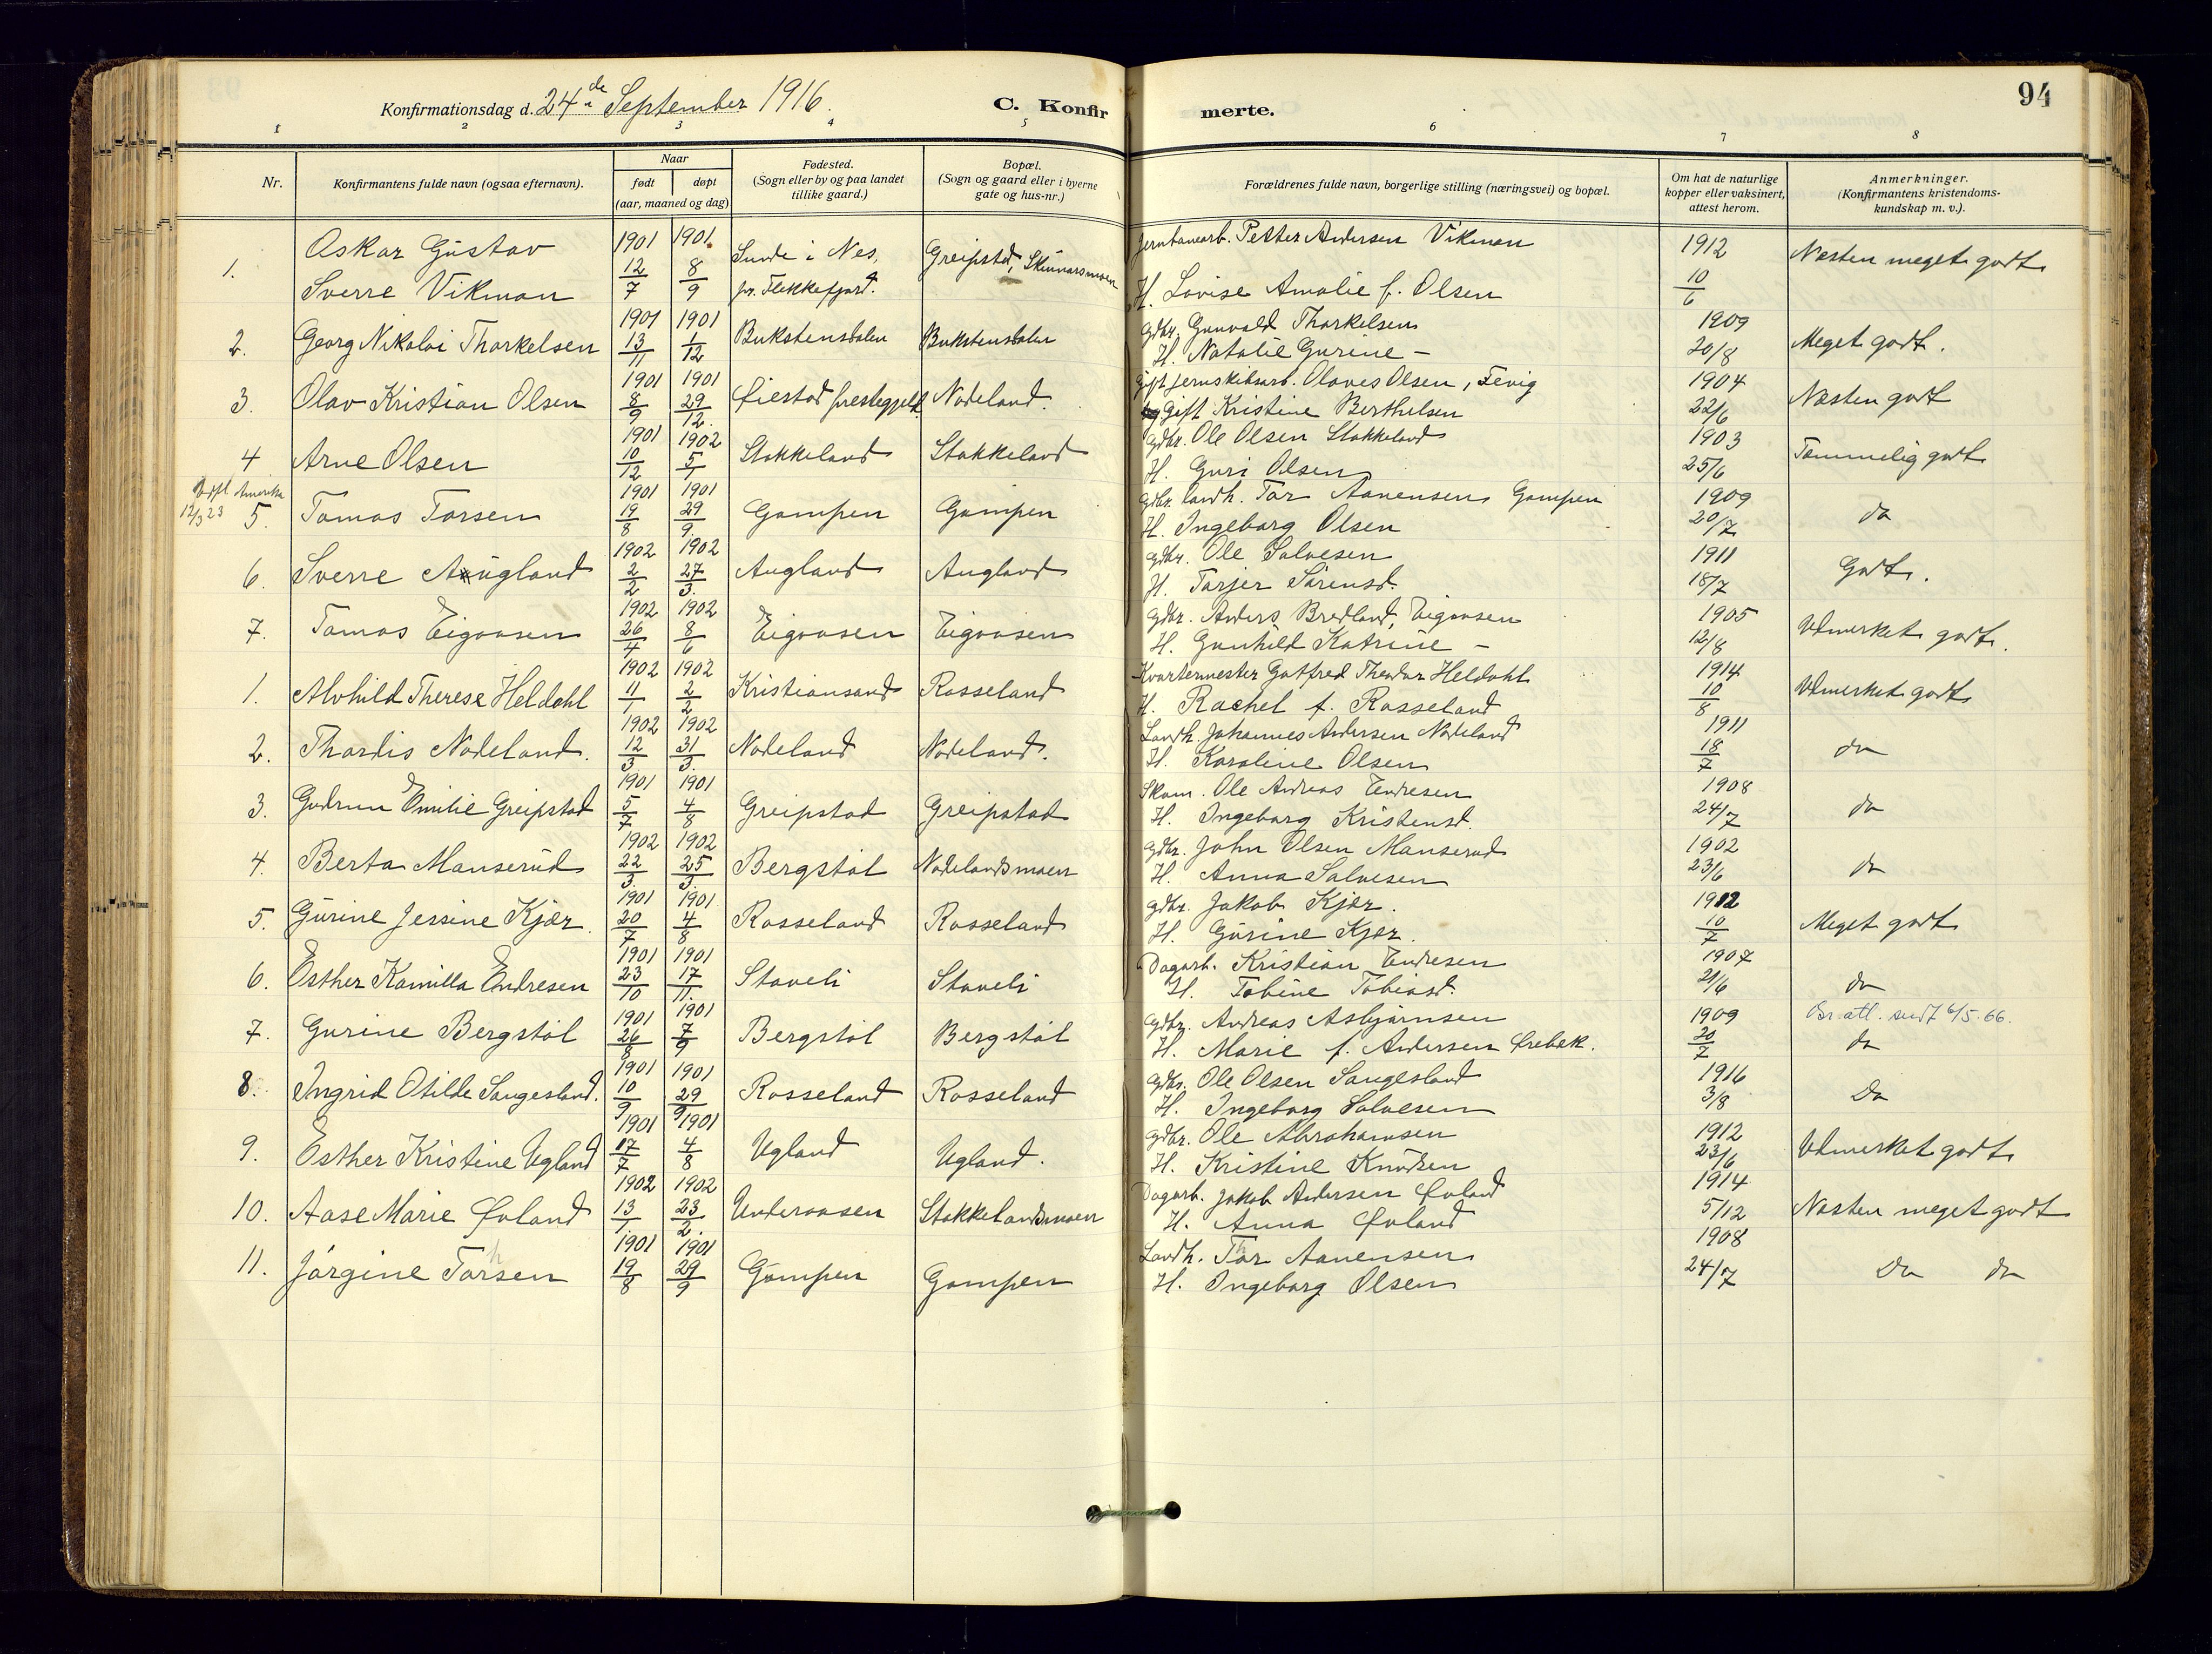 Konfirmationsdag d. 24de September 1916.
C. Konfirmerte.
94
1 2 3 4 5 6 7 8
Nr.
Konfirmantens fulde navn (ogsaa efternavn).
Naar
født døpt
(aar, maaned og dag)
Fødested.
(Sogn eller by og paa landet
tillike gaard.)
Bopæl.
(Sogn og gaard eller i byerne
gate og hus-nr.)
Forældrenes fulde navn, borgerlige stilling (næringsvei) og bopæl.
Om hat de naturlige
kopper eller vaksinert,
attest herom.
Anmerkninger.
(Konfirmantens kristendoms-
kundskap m. v.).
1. Oskar Gustav 1901 1901 Sunde i Nes, Greipstad, Skinnarsmoen Jernbanearb. Petter Andersen Vikman 1912 Næsten meget godt
Sverre Vikman 12/7 8/9 pr. Flekkefjord. H. Lovise Amalie f. Olsen 10/6
2. Georg Nikolai Thorkelsen 1901 13/11 1901 1/12 Bukstensdalen Bukstensdalen gdbr. Gunvald Thorkelsen 1909 Meget godt.
H. Natalie Gurine - 20/8
3. Olav Kristian Olsen 1901 8/9 1901 29/12 Øiestad prestegjeld Nodeland. gift jernskibsarb. Olaves Olsen, Fevig 1904 Næsten godt
Gift Kristine Berthelsen 22/6
4 Arne Olsen 1901 10/12 1902 5/1 Stokkeland Stokkeland gdbr. Ole Olsen Stokkeland 1903 Temmelig godt
H. Guri Olsen 25/6
Utfl. Amerika
12/3 23
5. Tomas Torsen 1901 19/8 1901 29/9 Gompen Gompen gdbr. landh. Tor Aanensen Gompen 1909 do
H. Ingeborg Olsen 20/7
6. Sverre Augland 1902 2/2 1902 27/3 Augland Augland gdbr. Ole Salvesen 1911 Godt.
H. Torjer Sörensd. 18/7
7. Tomas Eigaasen 1902 26/4 1902 8/6 Eigaasen Eigaasen gdbr. Anders Bredland, Eigaasen 1905 Utmerket godt.
H. Gunhild Katrine - 12/8
1. Alvhild Therese Heldahl 1902 11/1 1902 2/2 Kristiansand Rosseland Kvartermester Gotfred Theodor Heldahl 1914 Utmerket godt
H. Rachel f. Rosseland 10/8
2. Thordis Nodeland. 1902 12/3 1902 31/3. Nodeland Nodeland. Landh. Johannes Andersen Nodeland 1911 do
H. Karoline Olsen 18/7
3. Gudrun Emilie Greipstad 1901 5/7 1901 4/8 Greipstad Greipstad Skom. Ole Andreas Endresen 1908 do
H. Ingeborg Kristensd. 24/7
4. Berta Manserud 1902 22/3. 1902 25/5. Bergstöl Nodelandsmoen gdbr. John Olsen Manserud 1902 do
H. Anna Salvesen 23/6
5. Gurine Jensine Kjær. 1901 20/7 1901 4/8 Rosseland Rosseland gdbr. Jakob Kjær. 1912 Meget godt
H. Gurine Kjær. 10/7
6. Esther Kamilla Endresen 1901 23/10 1901 17/11. Staveli Staveli Dagarb. Kristian Endresen 1907 do
H. Tobine Tobiasd. 21/6
7. Gurine Bergstöl 1901 26/8 1901 7/9 Bergstöl Bergstöl gdbr. Andreas Asbjörnsen 1909 sendt 6/5.66.
H. Marie f. Andersen Örebek. 20/7 do
8. Ingrid Otilde Sangesland. 1901 10/9 1901 29/9 Rosseland Rosseland gdbr. Ole Olsen Sangesland 1916 Do
H. Ingeborg Salvesen 3/8
9. Esther Kristine Ugland 1901 17/7 1901 4/8 Ugland Ugland. gdbr. Ole Abrahamsen 1912 Utmerket godt
H. Kristine Knudsen 23/6
10. Aase Marie Øvland 1902 13/1. 1902 23/2. Underaasen Stokkelandsmoen Dagarb. Jakob Andersen Øvland 1914 Næsten meget godt
H. Anna Øvland 5/12
11. Jörgine Torsen 1901 19/8 1901 29/9 Gompen Gompen Landh. Thor Aanensen 1908 Do do
H. Ingeborg Olsen 24/7